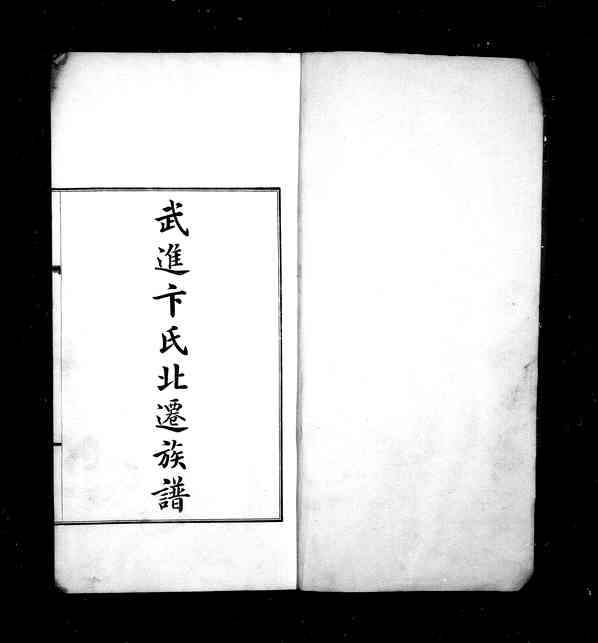 武進卞氏北遷族譜